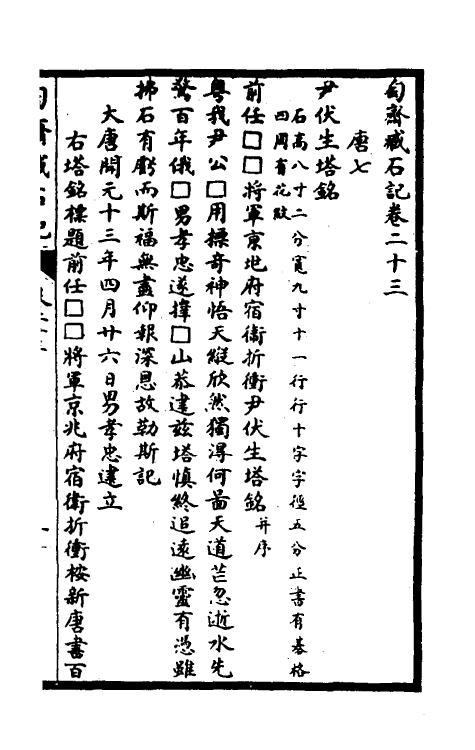 匋齋臧石記卷二十三
唐七
尹伏生塔銘
石高八寸二分寬九寸十一行行十字字徑五分正書有碁格
四周有花紋
前任□□將軍京地府宿衛折衝尹伏生塔銘并序
粵我尹公□用摽奇神悟天縱欣然獨得何啚天道芒忽逝水先
驚百年俄□男孝忠遂擇□山恭建兹塔慎終追遠幽靈有憑雖
拂石有虧而斯福無盡仰報深恩故勒斯記
大唐開元十三年四月廿六日男孝忠建立
右塔銘標題前任□□將軍京兆府宿衛折衝桉新唐書百
匋齋臧石記